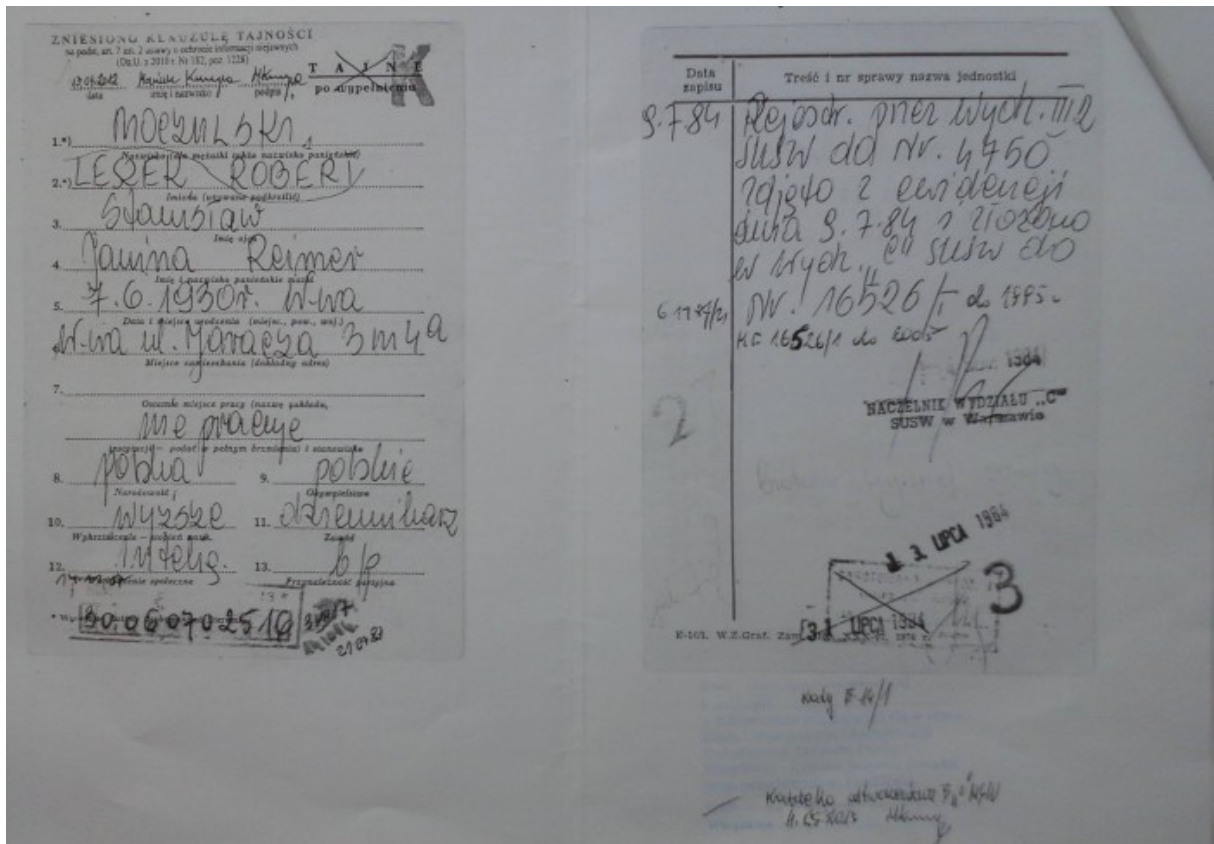 ZNIESIONO KLAUZULĘ TAJNOŚCI
na podst. art. 7 ust. 2 ustawy o ochronie informacji niejawnych
(Dz.U. z 2010 r. Nr 182, poz. 1228)
data imię i nazwisko podpis
T A J N E
po wypełnieniu
K
1.*) MOCZULSKI
Nazwisko (dla mężatki także nazwisko panieńskie)
2.*) LESZEK ROBERT
Imiona (używane podkreślić)
3. Stanisław
Imię ojca
4. Janina Reimer
Imię i nazwisko panieńskie matki
5. 7.6.1930r. W-wa
Data i miejsce urodzenia (miejsc., pow., woj.)
W-wa ul. Jaracza 3 m 4a
Miejsce zamieszkania (dokładny adres)
7.
Ostatnie miejsce pracy (nazwa zakładu,
nie pracuje
instytucji – podać w pełnym brzmieniu) i stanowisko
8. polska 9. polskie
Narodowość Obywatelstwo
10. wyższe 11. dziennikarz
Wykształcenie – stopień nauk. Zawód
12. intelig. 13. b/p
Pochodzenie społeczne Przynależność partyjna
30.060702510
Data zapisu
Treść i nr sprawy nazwa jednostki
9.7.84 Rejestr. przez Wydz. III2
SUSW do Nr. 4750
zdjęto z ewidencji
dnia 9.7.84 i złożono
w Wydz. „C" SUSW do
Nr. 16526/I do 1995r.
16526/1 do
1984
NACZELNIK WYDZIAŁU „C"
SUSW w Warszawie
2
LIPCA 1984
3
31 LIPCA 1984
E-14/1. W.Z.Graf.